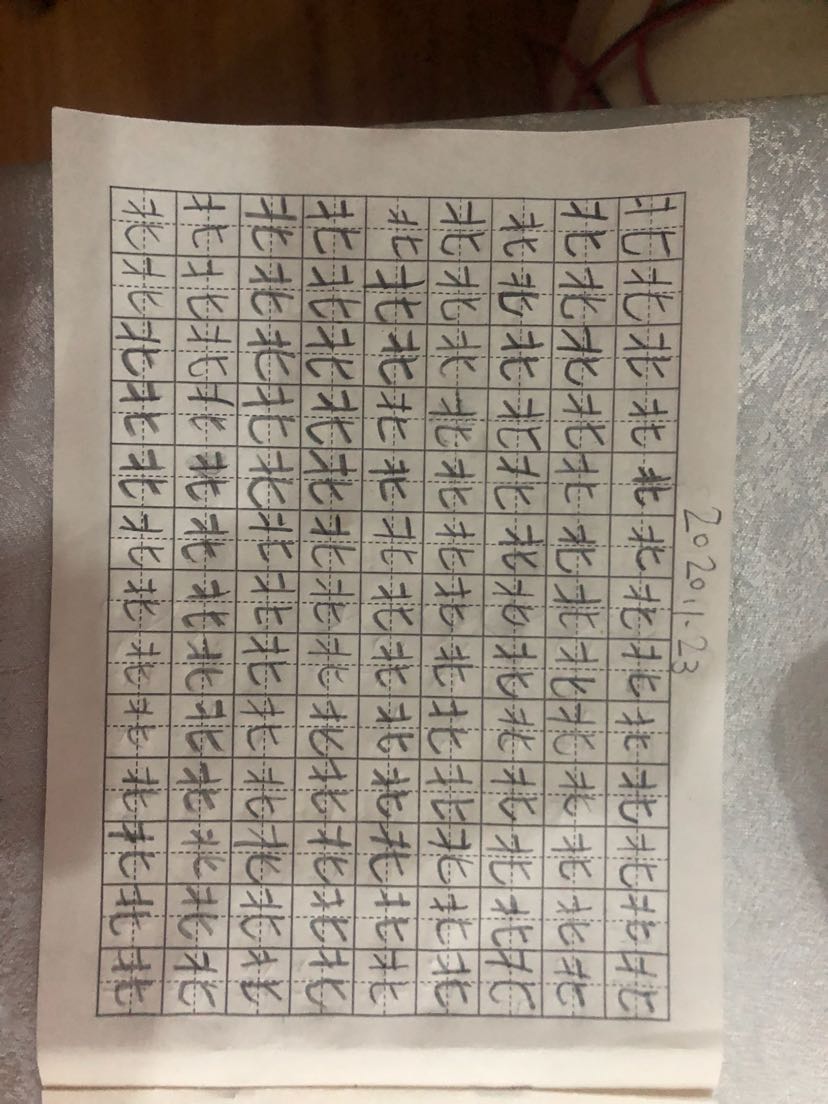 2020.1.23
北北北北北北北北北北北北北
北北北北北北北北北北北北北
北北北北北北北北北北北北北
北北北北北北北北北北北北北
北北北北北北北北北北北北北
北北北北北北北北北北北北北
北北北北北北北北北北北北北
北北北北北北北北北北北北北
北北北北北北北北北北北北北